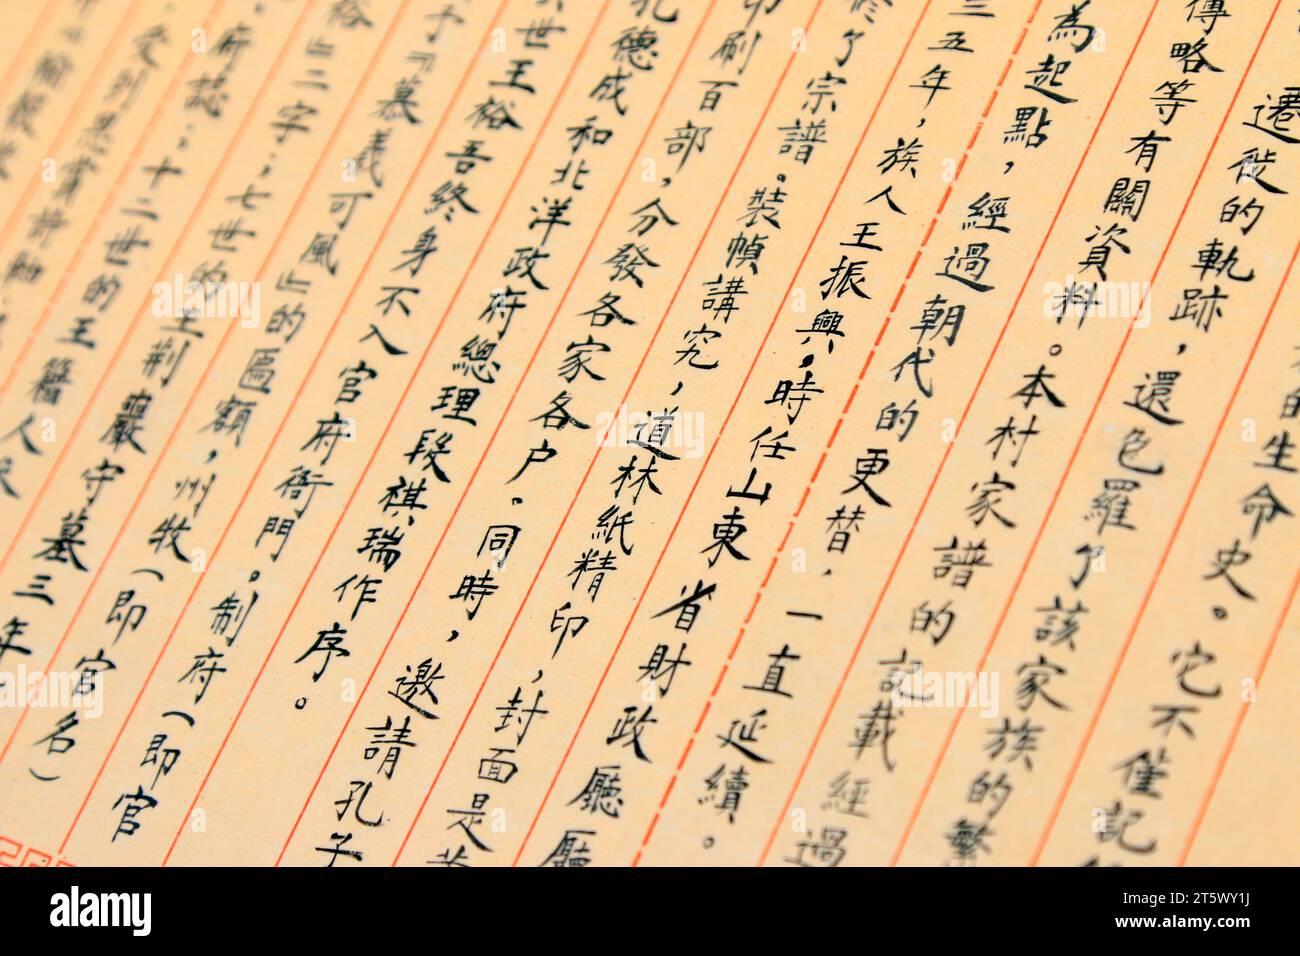 的生命史。它不僅記
遷徙的軌跡，還色羅了該家族的繁
傳略等有關資料。本村家譜的記載經過
為起點，經過朝代的更替，一直延續。
三五年，族人王振興，時任山東省財政廳廳
修了宗譜。裝幀講究，道林紙精印，封面是
印刷百部，分發各家各户。同時，邀請孔子
孔德成和北洋政府總理段祺瑞作序。
世王裕吾終身不入官府衙門。制府（即官
予『慕義可風』的匾額，州牧（即官名）
裕』二字；七世的王荆巖守墓三年
府誌；十二世的王籍人
受到恩賞
alamy
Image ID: 2T5WY1J
www.alamy.com